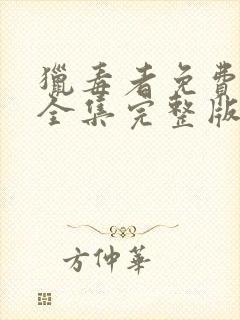 獵毒者免費
全集完整版
方仲華